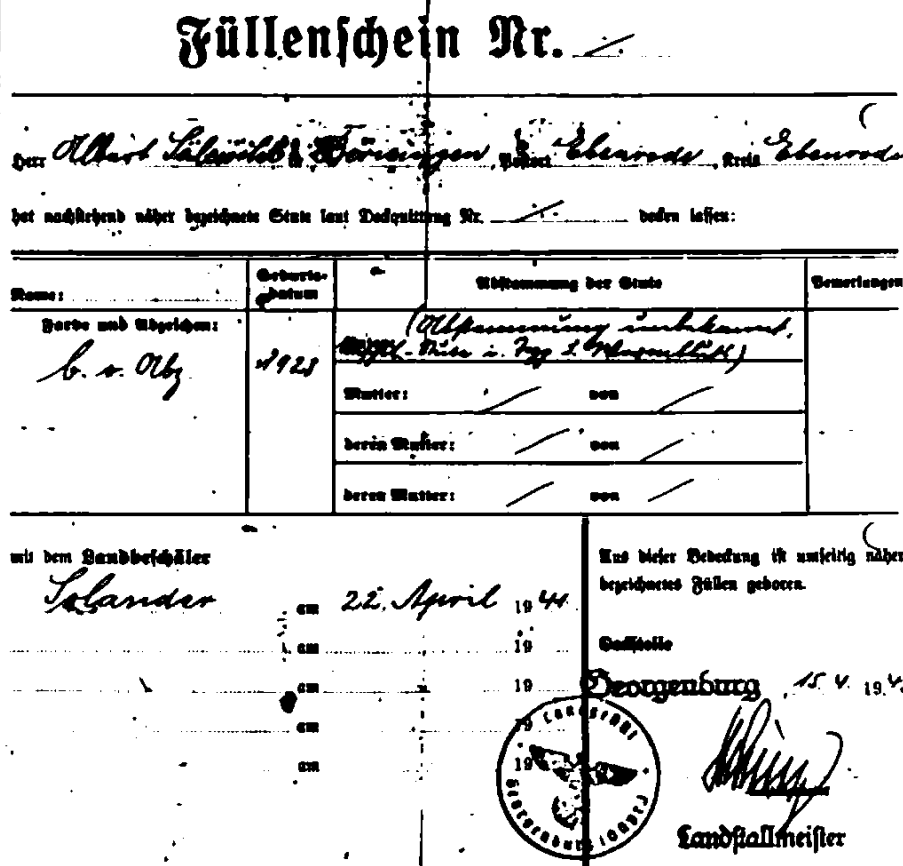 Füllenschein Nr. /
Herr Albert in Poſtort Ebenrode, Kreis Ebenrode
hat nachſtehend näher bezeichnete Stute laut Deckquittung Nr. / decken laſſen:
Name: Geburts-datum Abſtammung der Stute Bemerkungen
Farbe und Abzeichen: (Abſtammung unbekannt.
b. o. Abz 1923 Stute i.
Mutter: / von /
deren Mutter: / von /
deren Mutter: / von /
mit dem Landbeſchäler
am 22. April 1941
am 19
am 19
am 19
am 19
Aus dieſer Bedeckung iſt umſeitig näher
bezeichnetes Füllen geboren.
Deckſtelle
Georgenburg 15 4. 19 4
Landgeſtüt Georgenburg (Oſtpr)
Landſtallmeiſter